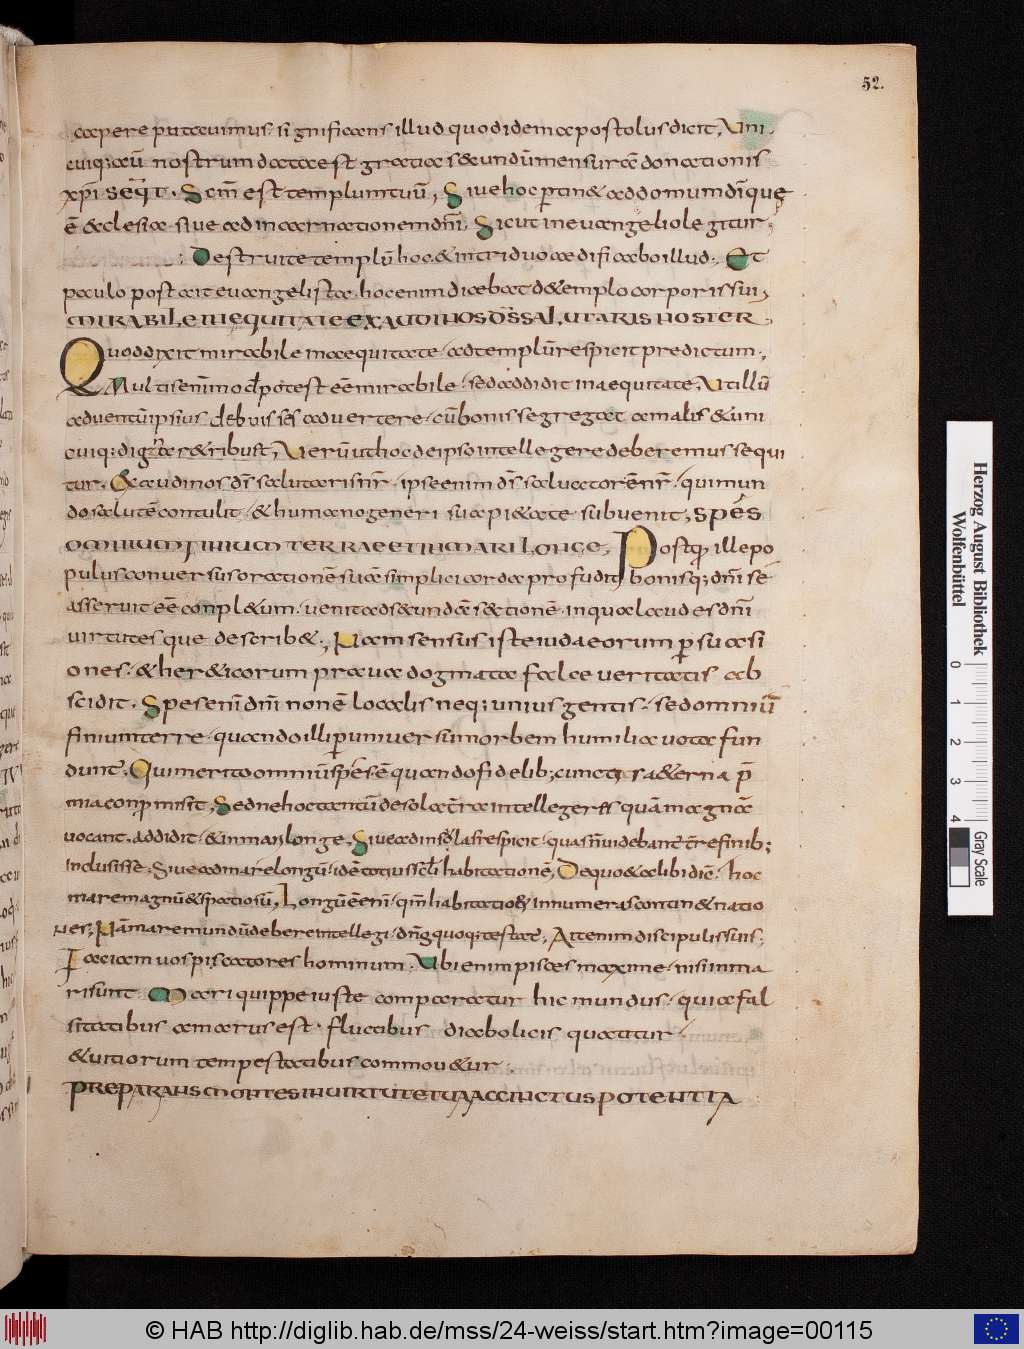 52.
capere putavimus. significans illud quod idem apostolus dicit, Uni
cuiq; aūt nostrum data est gratia secundū mensurā donationis
xp̄i seq̄t. Scm̄ est templum tuū, Sive hoc ptin& ad domum dn̄i que
ē &clesia. sive ad incarnationem dn̄i. Sicut in evangelio legitur,
Destruite templū hoc, & in triduo aedificabo illud. Et
paulo post ait evangelista. hoc enim dicebat de templo corporis sui,
MIRABILE IN EQUITATE EXAUDI NOS DS̄ SALUTARIS NOSTER,
Quod dixit mirabile in aequitate. ad templū respicit predictum.
Multis enim mod potest eē mirabile. sed addidit in aequitate, Ut illū
adventū ipsius adverte­re. cū bonis segregat a malis & uni
cuiq; digna r&ribuit, Verū ut hoc de ipso intellegere deberemus sequi
tur. Exaudi nos ds̄ salutaris nr̄. ipse enim ds̄ salvator ē nr̄. qui mun
do salutē contulit. & humano generi sua pi&ate subvenit, SPES
OMNIUM FINIUM TERRAE ET IN MARI LONGE, Postq̄ ille po
pulus conversus orationē suā simplici corde profudit, bonisq; dn̄i sē
asseruit eē conpl&um. venit ad secundā sectionē. in qua laudes dn̄i
virtutesque describ&. Nam sensus iste iudaeorum p suasi
ones. & her&icorum prava dogmata falce veritatis ab
scidit. Spes enī dn̄i non ē localis neq; unius gentis. sed omniū
finium terre. quando illi p universum orbem humilia vota fun
dunt, Qui merito omniū spes ē quando fidelib; cunctis sa&erna p
mia conp misit, Sed ne hoc tantū de sola terra intellegeres quā magnā
vocant. addidit. & in mari longe. Sive ad insulas respicit. quas n̄ videbant terre finib;
inclusisse. Sive ad mare longū. idē totius sc̄li habitationē, De quo & alibi dic. hoc
mare magnū & spatiosū, Longū ē enī. qm̄ habitatio innumeras contin& natio
nes; Nā mare mundū debere intellegi. dn̄s quoq; testat. Ait enim discipulis suis;
Faciam vos piscatores hominum. Ubi enim pisces maxime. nisi in ma
ri sunt. Mari quippe iuste comparatur hic mundus. quia fal
sitatibus amarus est. fluctibus diabolicis quatitur.
& vitiorum tempestatibus commov&ur.
PREPARANS MONTES IN VIRTUTE TUA ACCINCTUS POTENTIA
Herzog August Bibliothek
Wolfenbüttel
0 1 2 3 4
Gray Scale
© HAB http://diglib.hab.de/mss/24-weiss/start.htm?image=00115